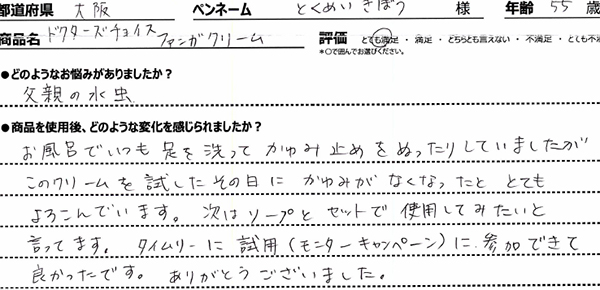 都道府県 大阪 ペンネーム とくめいきぼう 様 年齢 55 歳
商品名 ドクターズチョイス ファンガクリーム 評価 とても満足・満足・どちらとも言えない・不満足・とても不満
*○で囲んでお選びください。
●どのようなお悩みがありましたか？
父親の水虫
●商品を使用後、どのような変化を感じられましたか？
お風呂でいつも足を洗って かゆみ止めをぬったりしていましたが
このクリームを試したその日に かゆみがなくなったと とても
よろこんでいます。次はソープとセットで使用してみたいと
言ってます。タイムリーに試用(モニターキャンペーン)に参加できて
良かったです。ありがとうございました。